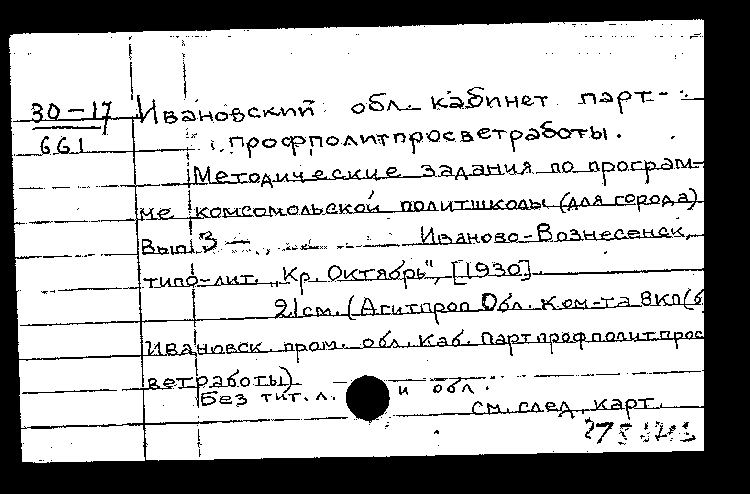 30-17
661
Ивановский обл. кабинет парт-
профполитпросветработы.
Методические задания по програм-
ме комсомольской политшколы (для города)
Вып. 3 — Иваново-Вознесенск,
типо-лит. „Кр. Октябрь", [1930].
21 см. (Агитпроп Обл. Ком-та ВКП(б
Ивановск. пром. обл. Каб. Партпрофполитпрос
ветработы)
Без тит. л. и обл.
см. след. карт.